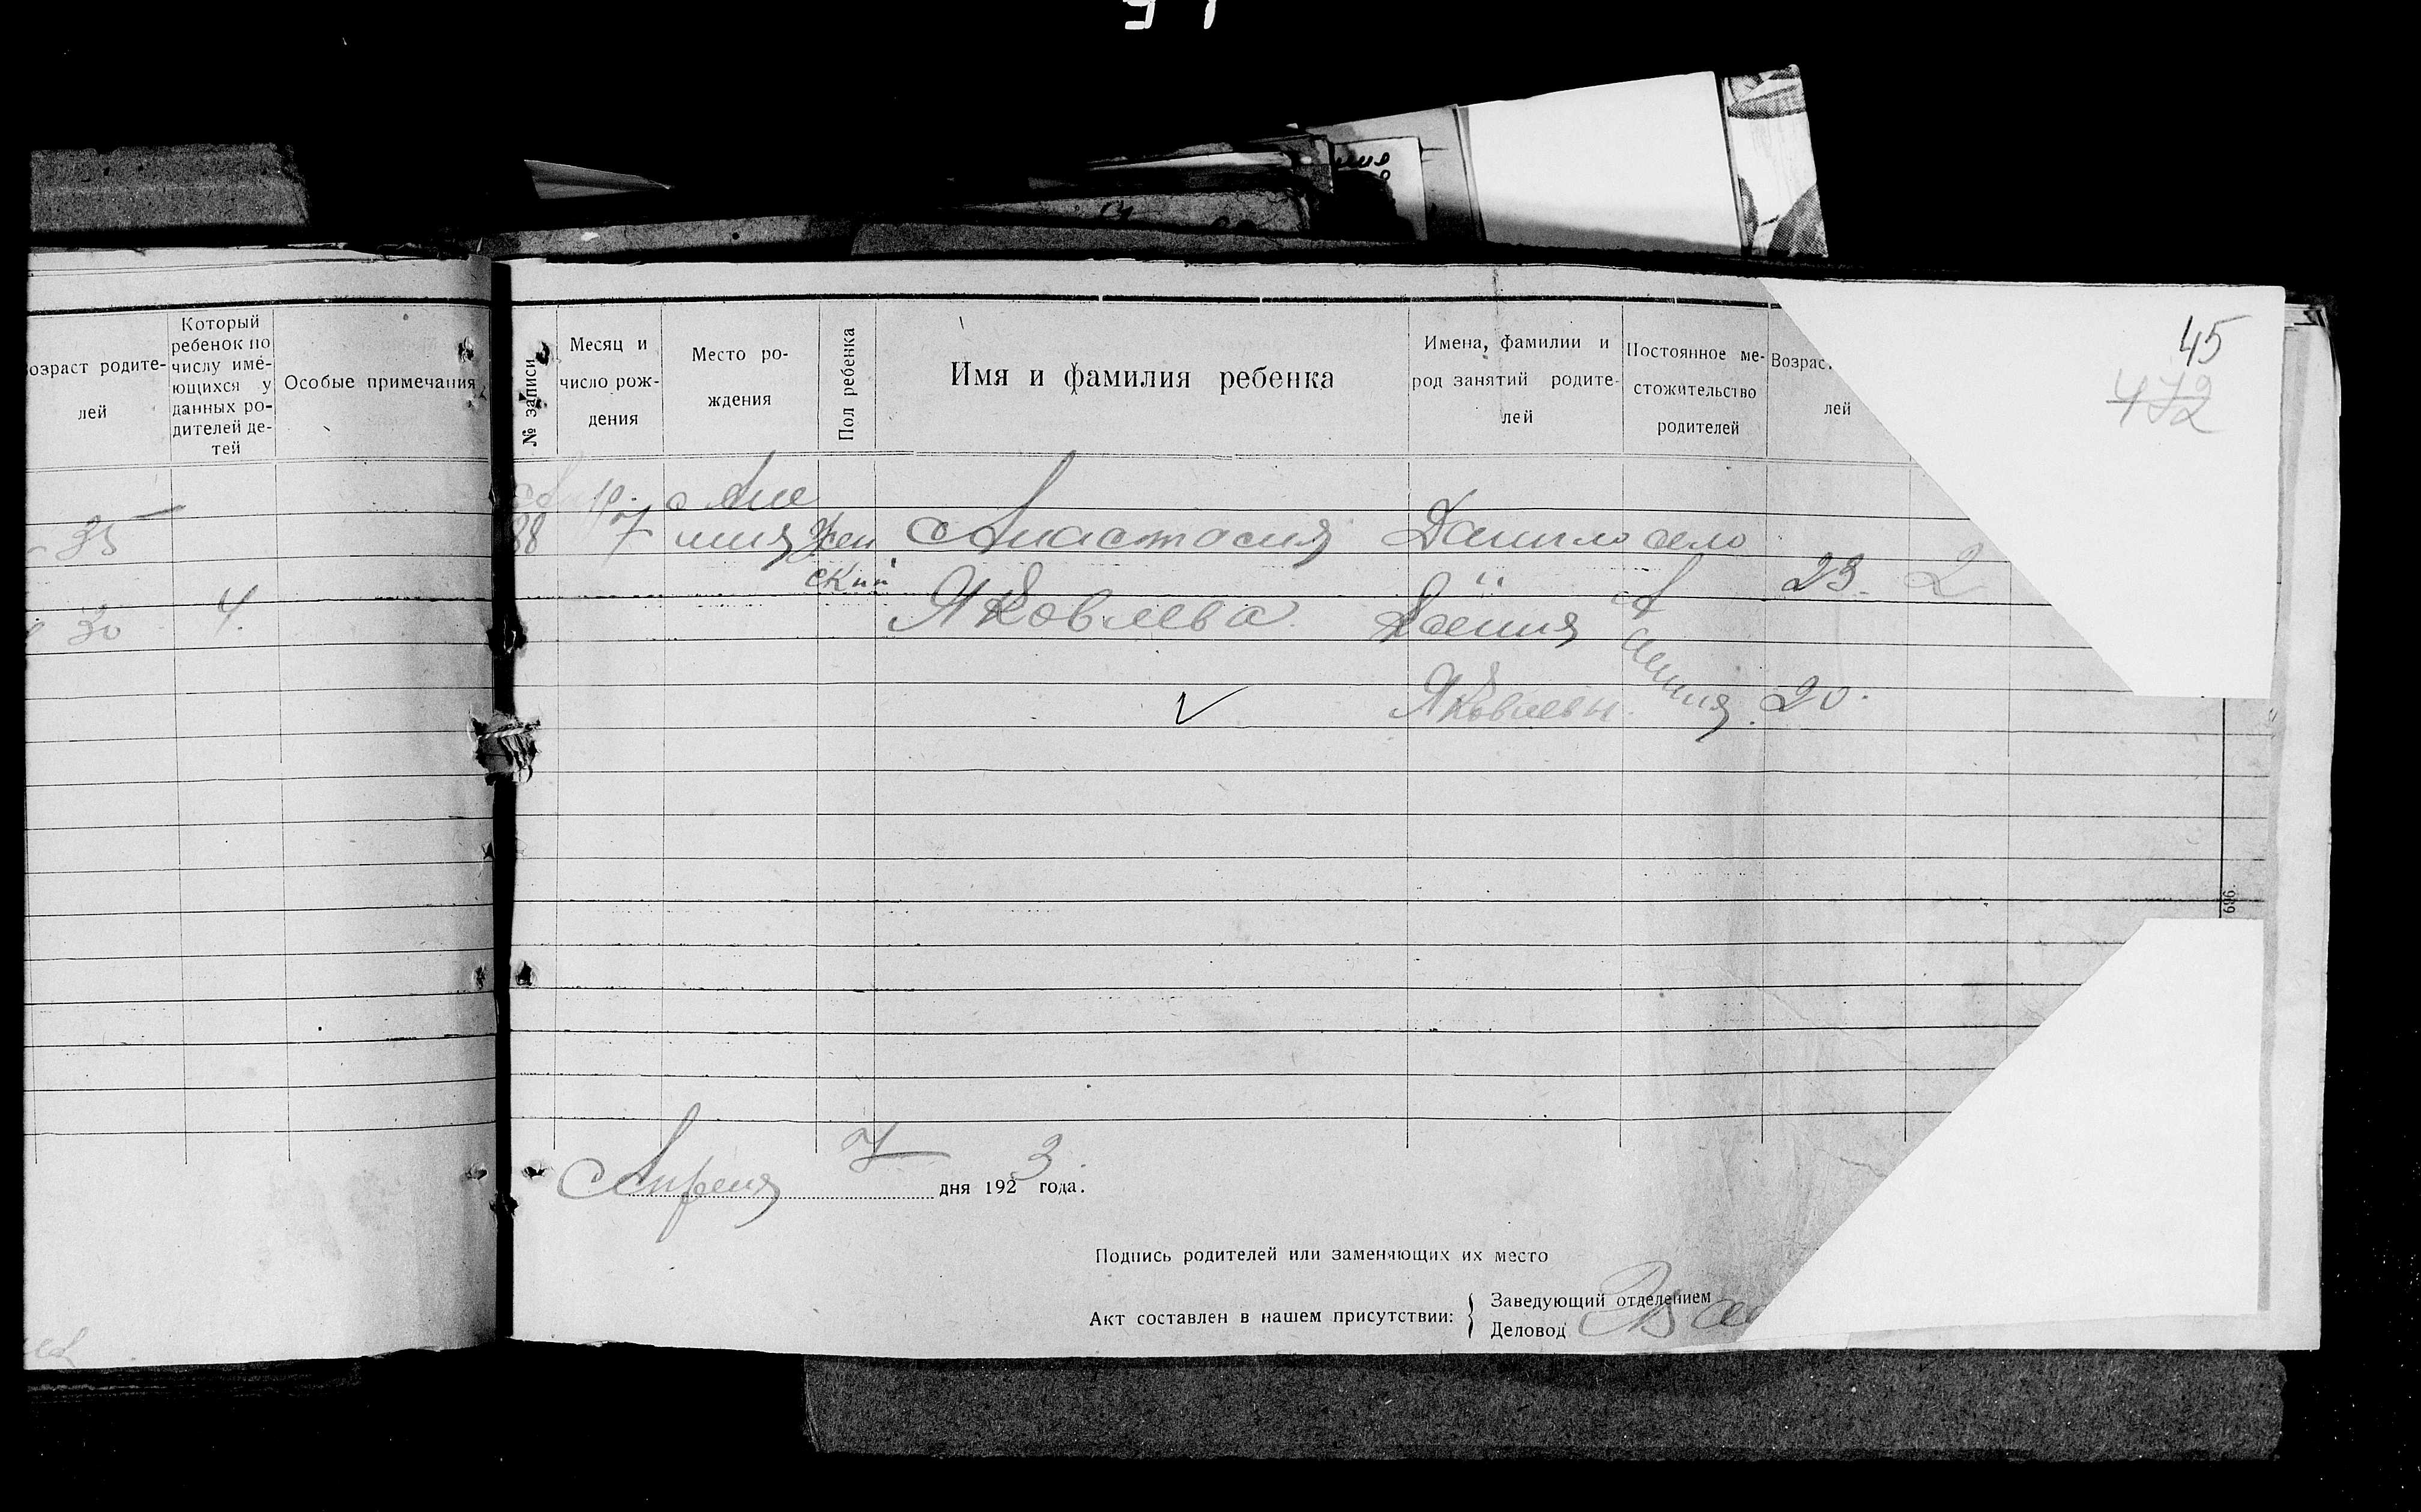 45
472
озраст родите-
лей
Который
ребенок по
числу име-
ющихся у
данных ро-
дителей де-
тей
Особые примечания
35
30
4.
№ записи
Месяц и
число рож-
дения
Место ро-
ждения
Пол ребенка
Имя и фамилия ребенка
Имена, фамилии и
род занятий родите-
лей
Постоянное ме-
стожительство
родителей
Возрас
лей
88
7
жен
ский
Анастасия
Яковлева
Данило
Яковлевы.
село
23. 2
20.
696.
Апреля 7 дня 1923 года.
Подпись родителей или заменяющих их место
Акт составлен в нашем присутствии:
Заведующий отделением
Деловод